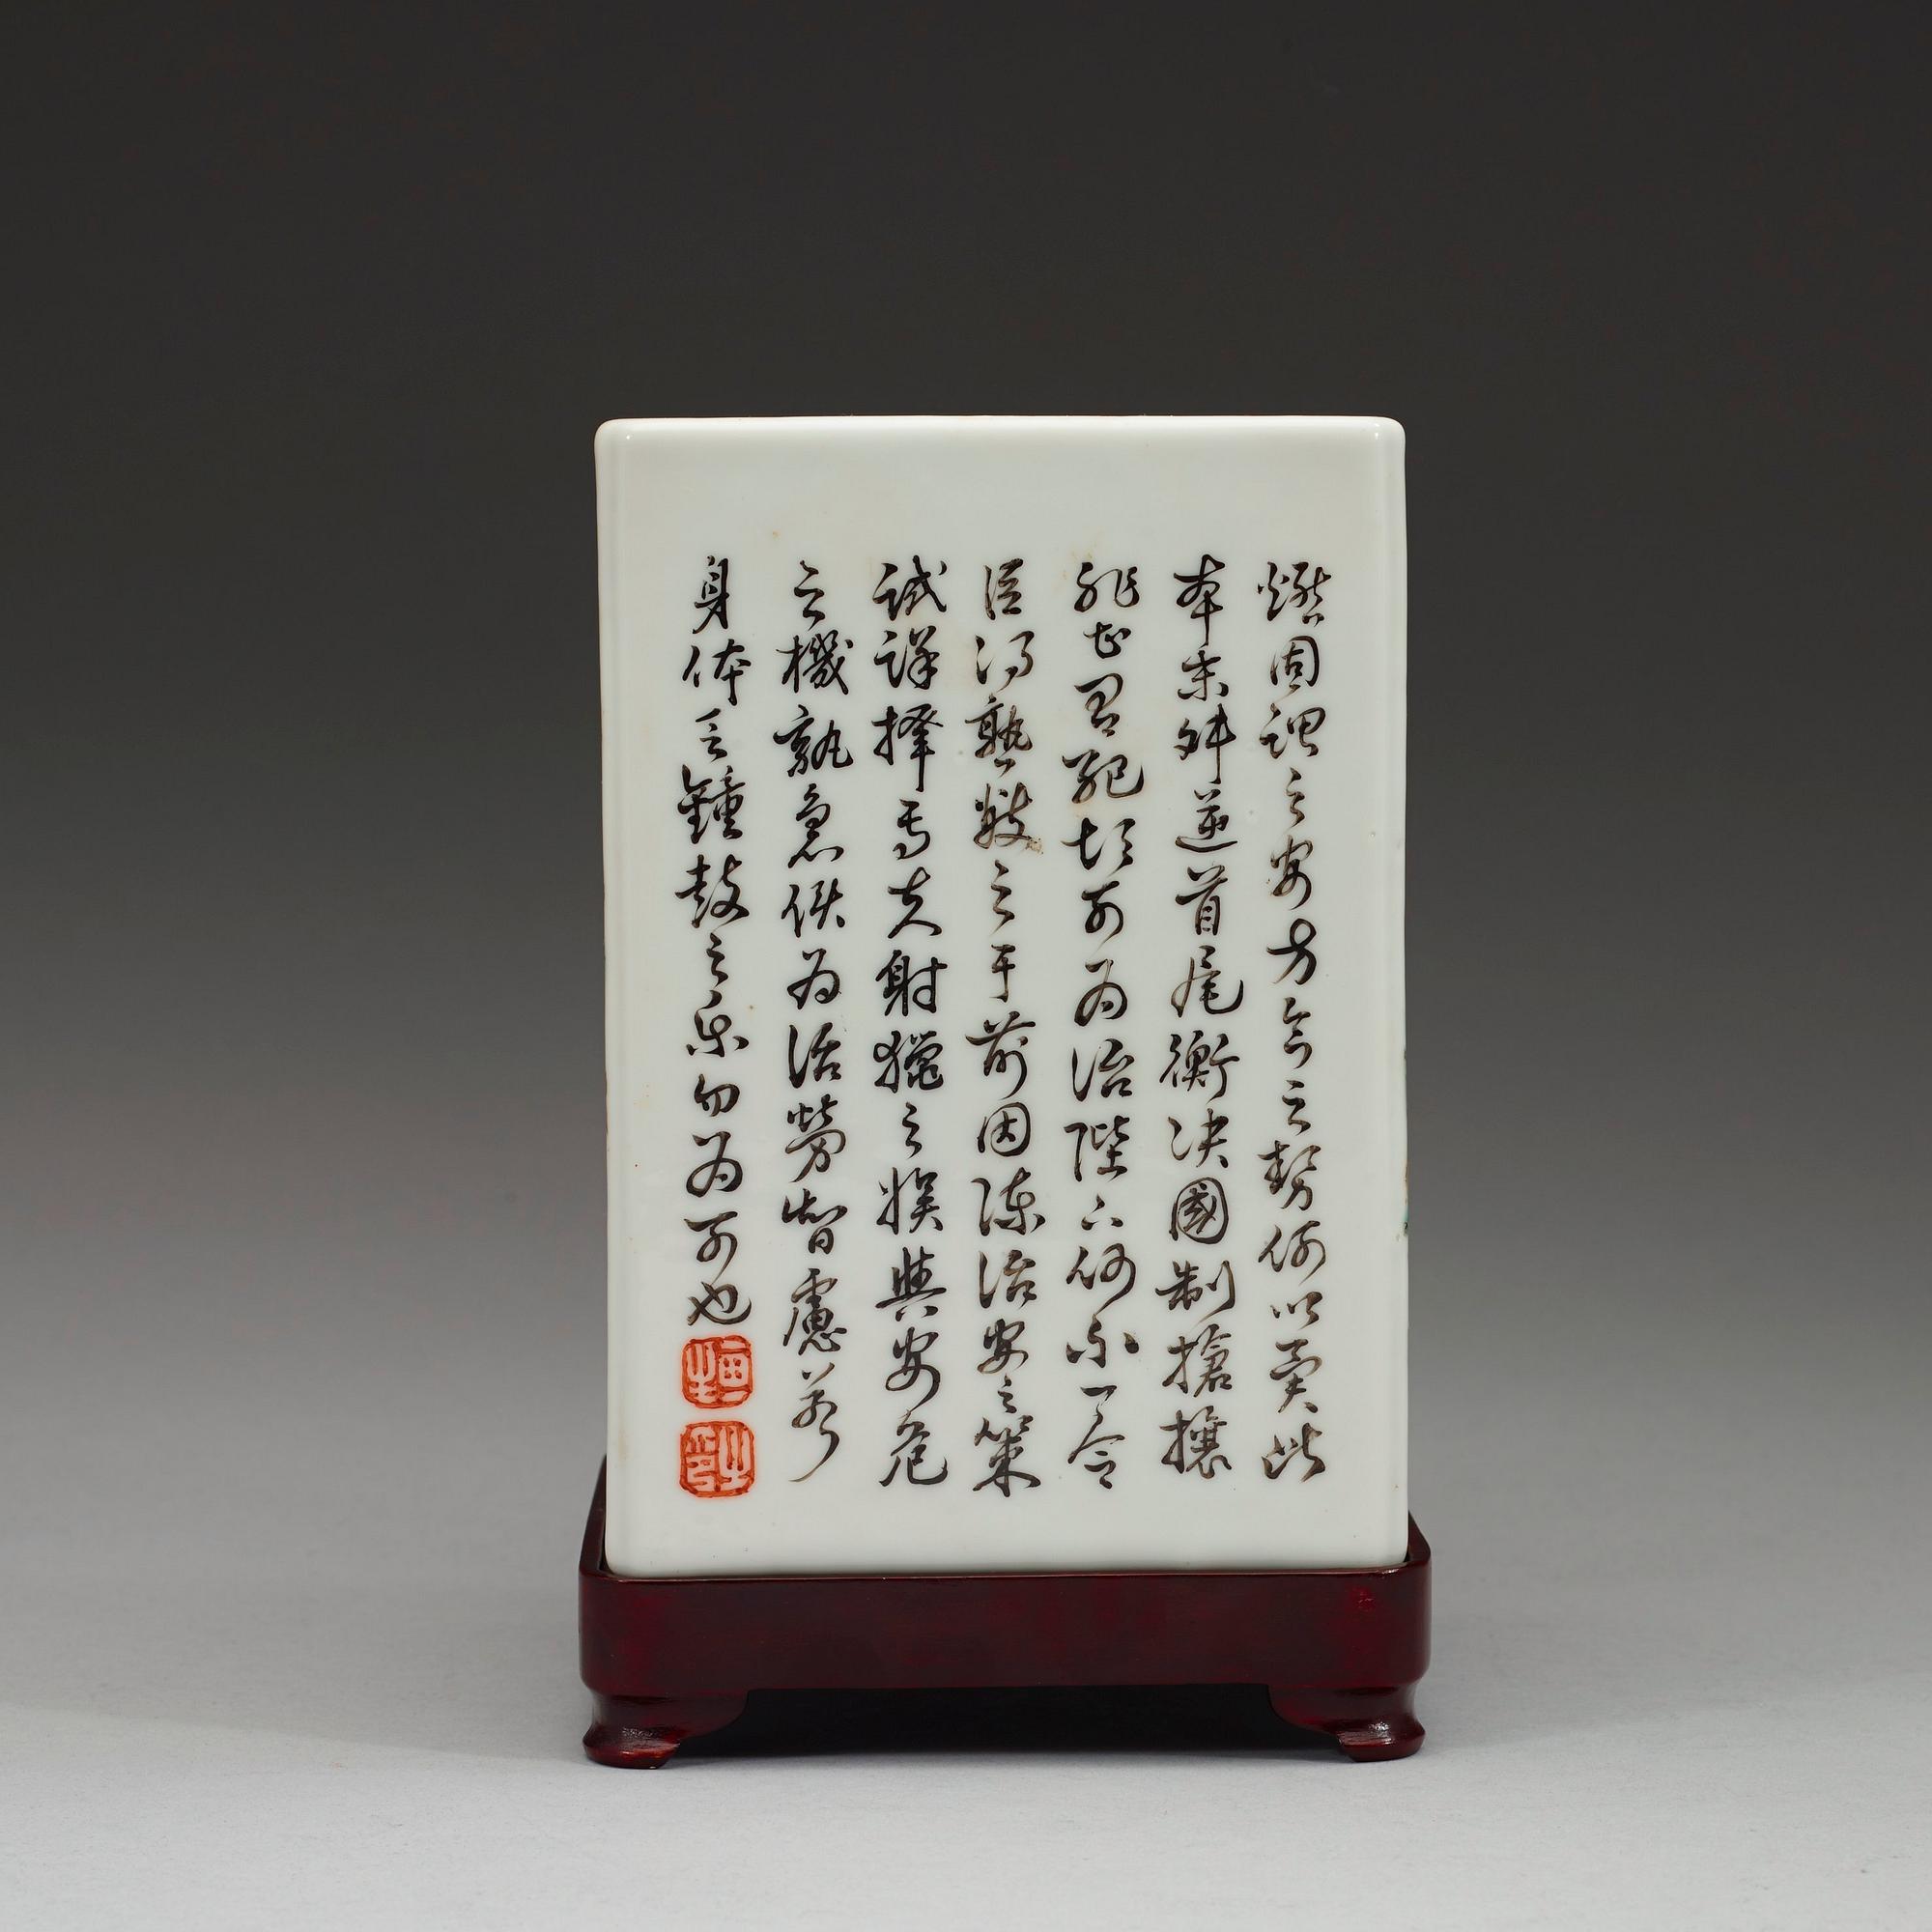 燃固謂之安方今之勢何以異此
本末舛逆首尾衡决國制搶攘
非甚有紀胡可為治陛下何不一令
臣得熟數之于前因陳治安之策
試詳擇焉夫射獵之娛與安危
之機孰急使為治勞智慮若
身体乏鐘鼓之樂勿為可也